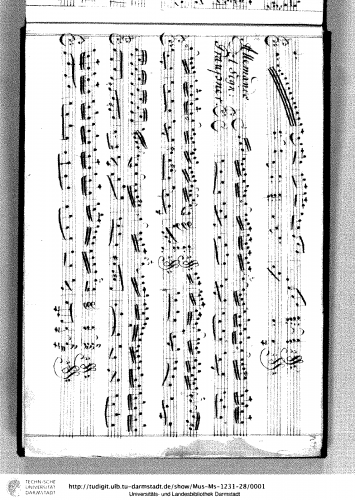 Allemande
del Sigr:
Graupner
TECHNISCHE
UNIVERSITÄT
DARMSTADT
http://tudigit.ulb.tu-darmstadt.de/show/Mus-Ms-1231-28/0001
Universitäts- und Landesbibliothek Darmstadt